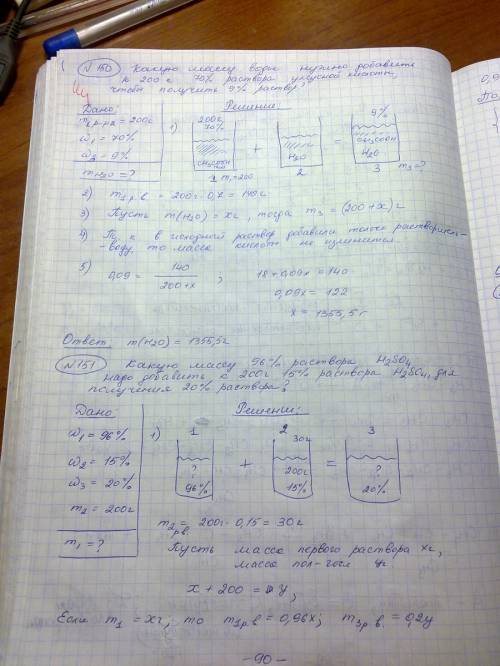 №150 Какую массу воды нужно добавить
к 200 г 70% раствора уксусной кислоты,
чтобы получить 9% раствор?
Дано: Решение:
m р-ра = 200г
ω1 = 70%
ω2 = 9%
mH2O = ?
1) 200г 70% CH3COOH + H2O = 9% CH3COOH H2O
1 m1=200 2 3 m3=?
2) m1р.в = 200г · 0,7 = 140г
3) Пусть m(H2O) = xг, тогда m3 = (200+x)г
4) Т.к в исходный раствор добавили только растворитель-
-воду, то масса кислоты не изменяется.
5) 0,09 = 140 / 200+x ; 18+0,09x = 140
0,09x = 122
x = 1355,5г
Ответ: m(H2O) = 1355,5г
№151 Какую массу 96% раствора H2SO4
надо добавить к 200г 15% раствора H2SO4, для
получения 20% раствора?
Дано: Решение:
ω1 = 96%
ω2 = 15%
ω3 = 20%
m2 = 200г
m1 = ?
1) 1 2 3
30г
? + 200г = ?
96% 15% 20%
m2р.в = 200г · 0,15 = 30г
Пусть масса первого раствора xг,
масса пол-гося yг.
x + 200 = y,
Если m1 = xг, то m1р.в = 0,96x; m3р.в. = 0,2y
-90-